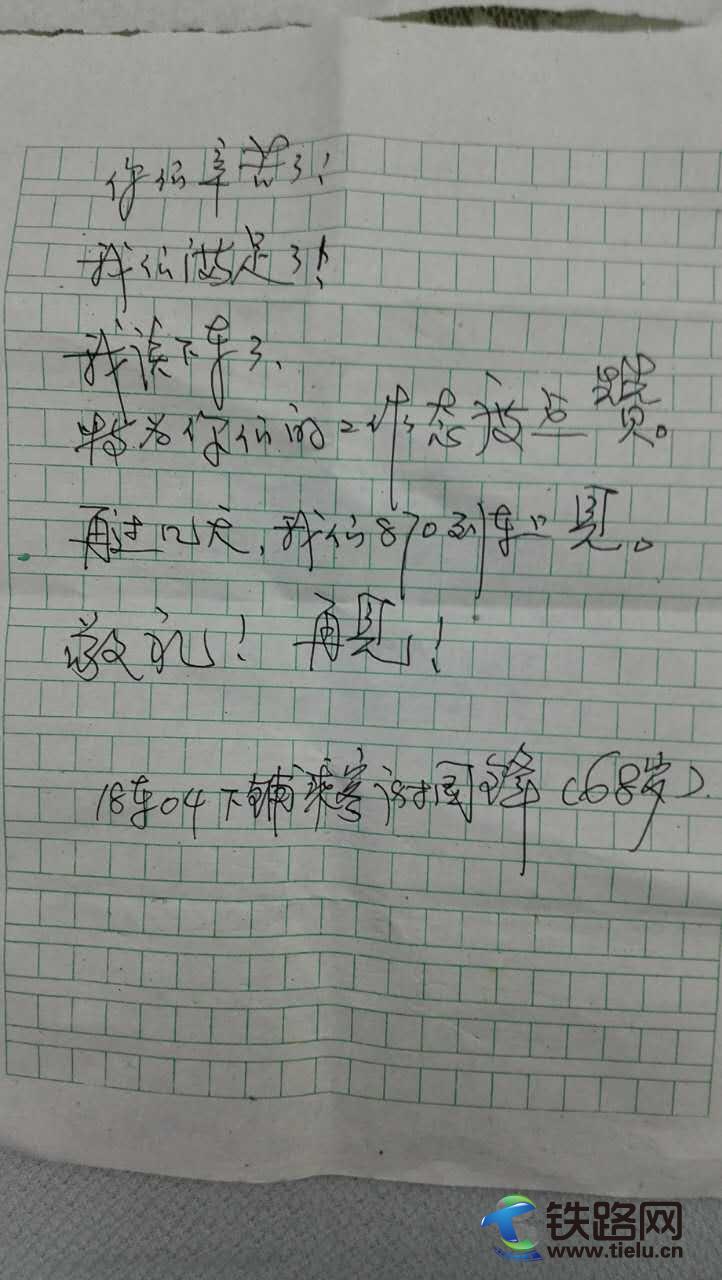 你们辛苦了!
我们满足了!
我该下车了、
特为你们的工作态度点赞。
再过12天,我们870列车上见。
敬礼! 再见!
18车04下铺乘客 国锋(68岁).
铁路网
www.tielu.cn